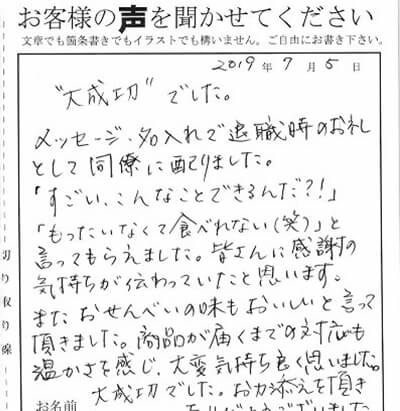 お客様の声を聞かせてください
文章でも箇条書きでもイラストでも構いません。ご自由にお書き下さい。
2019年7月5日
"大成功"でした。
メッセージ、名入れで退職時のお礼
として同僚に配りました。
「すごい、こんなことできるんだ?!」
「もったいなくて食べれない(笑)」と
言ってもらえました。皆さんに感謝の
気持ちが伝わっていたと思います。
またおせんべいの味もおいしいと言って
頂きました。商品が届くまでの対応も
温かさを感じ、大変気持ち良く思いました。
大成功でした。お力添えを頂き
お名前
ありがとうございました
切り取り線